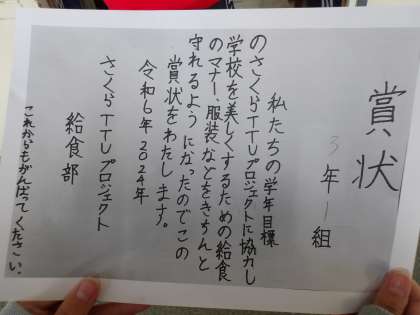 賞状
3年1組
私たちの学年目標
のさくらTTUプロジェクトに協力し
学校を美しくするための給食
のマナー、服装などをきちんと
守れるようになったのでこの
賞状をわたします。
令和6年2024年
さくらTTUプロジェクト
給食部
これからもがんばってください。